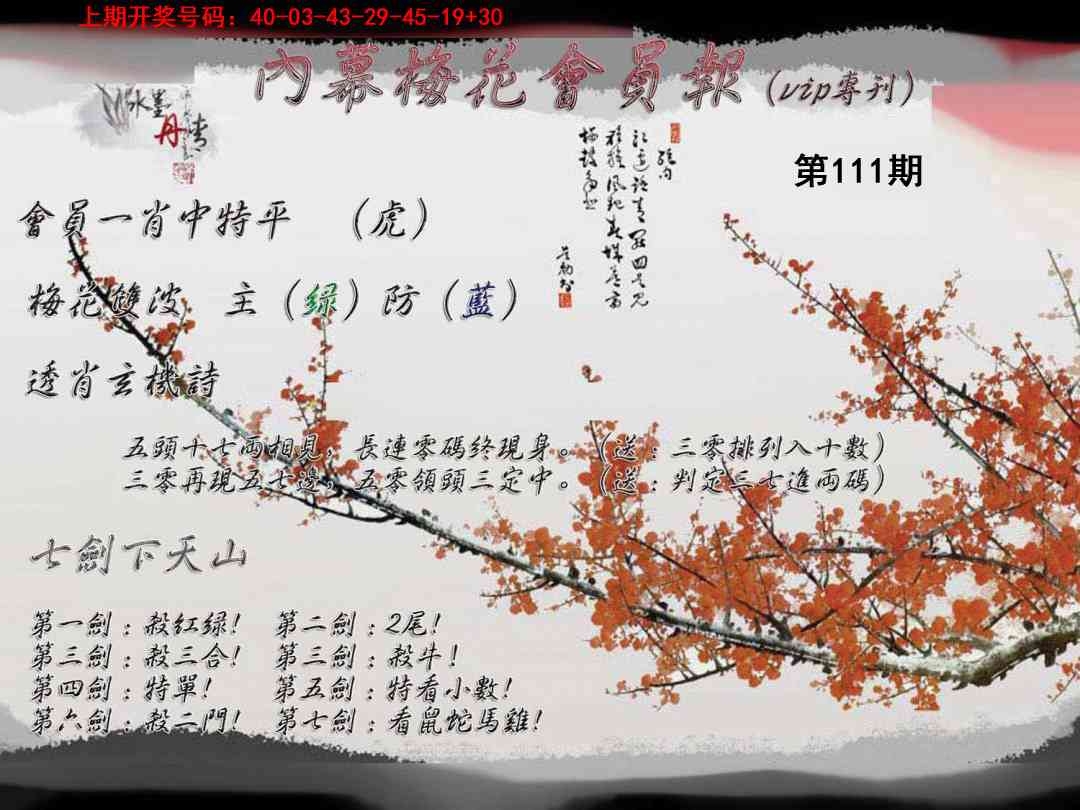 上期开奖号码：40-03-43-29-45-19+30
內幕梅花會員報（vip專刊）
水墨
丹青
第111期
會員一肖中特平 （虎）
梅花雙波 主（緑）防（藍）
透肖玄機詩
五頭十七兩相見，長連零碼终現身。（送：三零排列入十數）
三零再現五七邊，五零領頭三定中。（送：判定三七進両碼）
七劍下天山
第一劍：殺紅緑！ 第二劍：2尾！
第三劍：殺三合！ 第三劍：殺牛！
第四劍：特單！ 第五劍：特看小數！
第六劍：殺二門！ 第七劍：看鼠蛇馬雞！